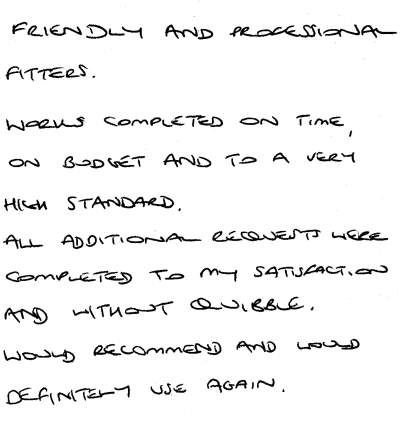 FRIENDLY AND PROFESSIONAL
FITTERS.
WORKS COMPLETED ON TIME,
ON BUDGET AND TO A VERY
HIGH STANDARD.
ALL ADDITIONAL REQUESTS WERE
COMPLETED TO MY SATISFACTION
AND WITHOUT QUIBBLE.
WOULD RECOMMEND AND WOULD
DEFINITELY USE AGAIN.